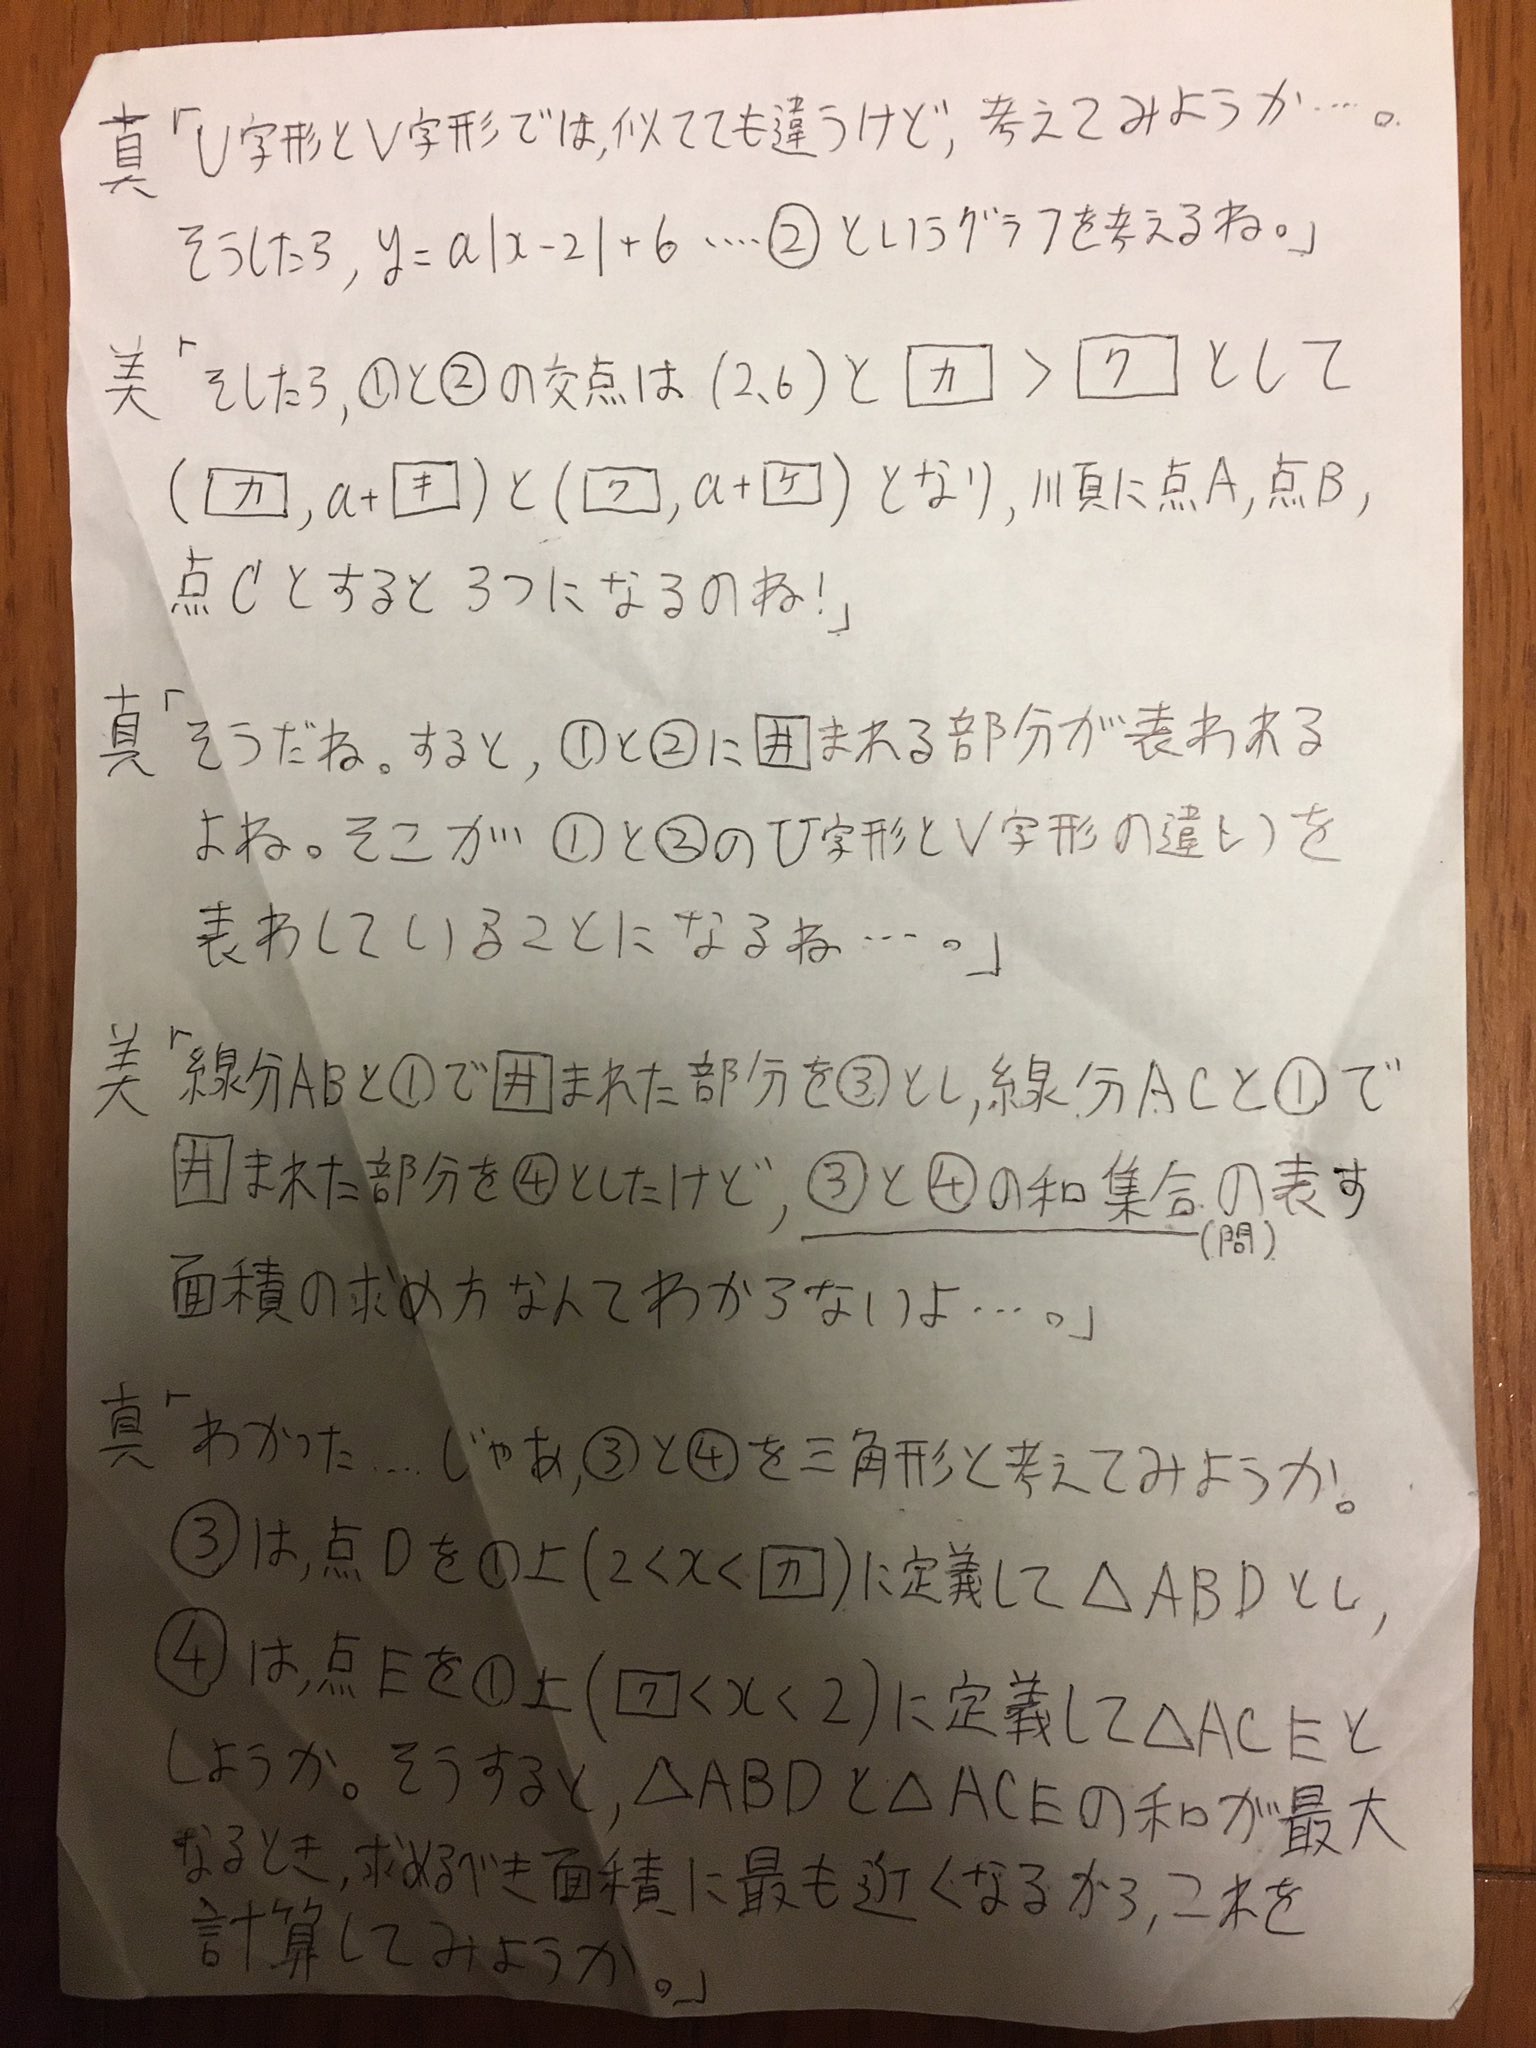 真「U字形とV字形では,似てても違うけど,考えてみようか……。
そうしたら, y=a|x-2|+6 ……②というグラフを考えるね。」
美「そしたら,①と②の交点は(2、6)と カ > ク として
( カ , a+ キ )と( ク , a+ ケ )となり,順に点A,点B,
点Cとすると3つになるのね!」
真「そうだね。すると,①と②に囲まれる部分が表われる
よね。そこが①と②のU字形とV字形の違いを
表わしていることになるね……。」
美「線分ABと①で囲まれた部分を③とし,線分ACと①で
囲まれた部分を④としたけど,③と④の和集合の表す
(問)
面積の求め方なんてわからないよ……。」
真「わかった……じゃあ,③と④を三角形と考えてみようか。
③は,点Dを①上(2<x< カ )に定義して△ABDとし,
④は,点Eを①上( ク <x<2)に定義して△ACEと
しようか。そうすると,△ABDと△ACEの和が最大
なるとき,求めるべき面積に最も近くなるから,これを
計算してみようか。」